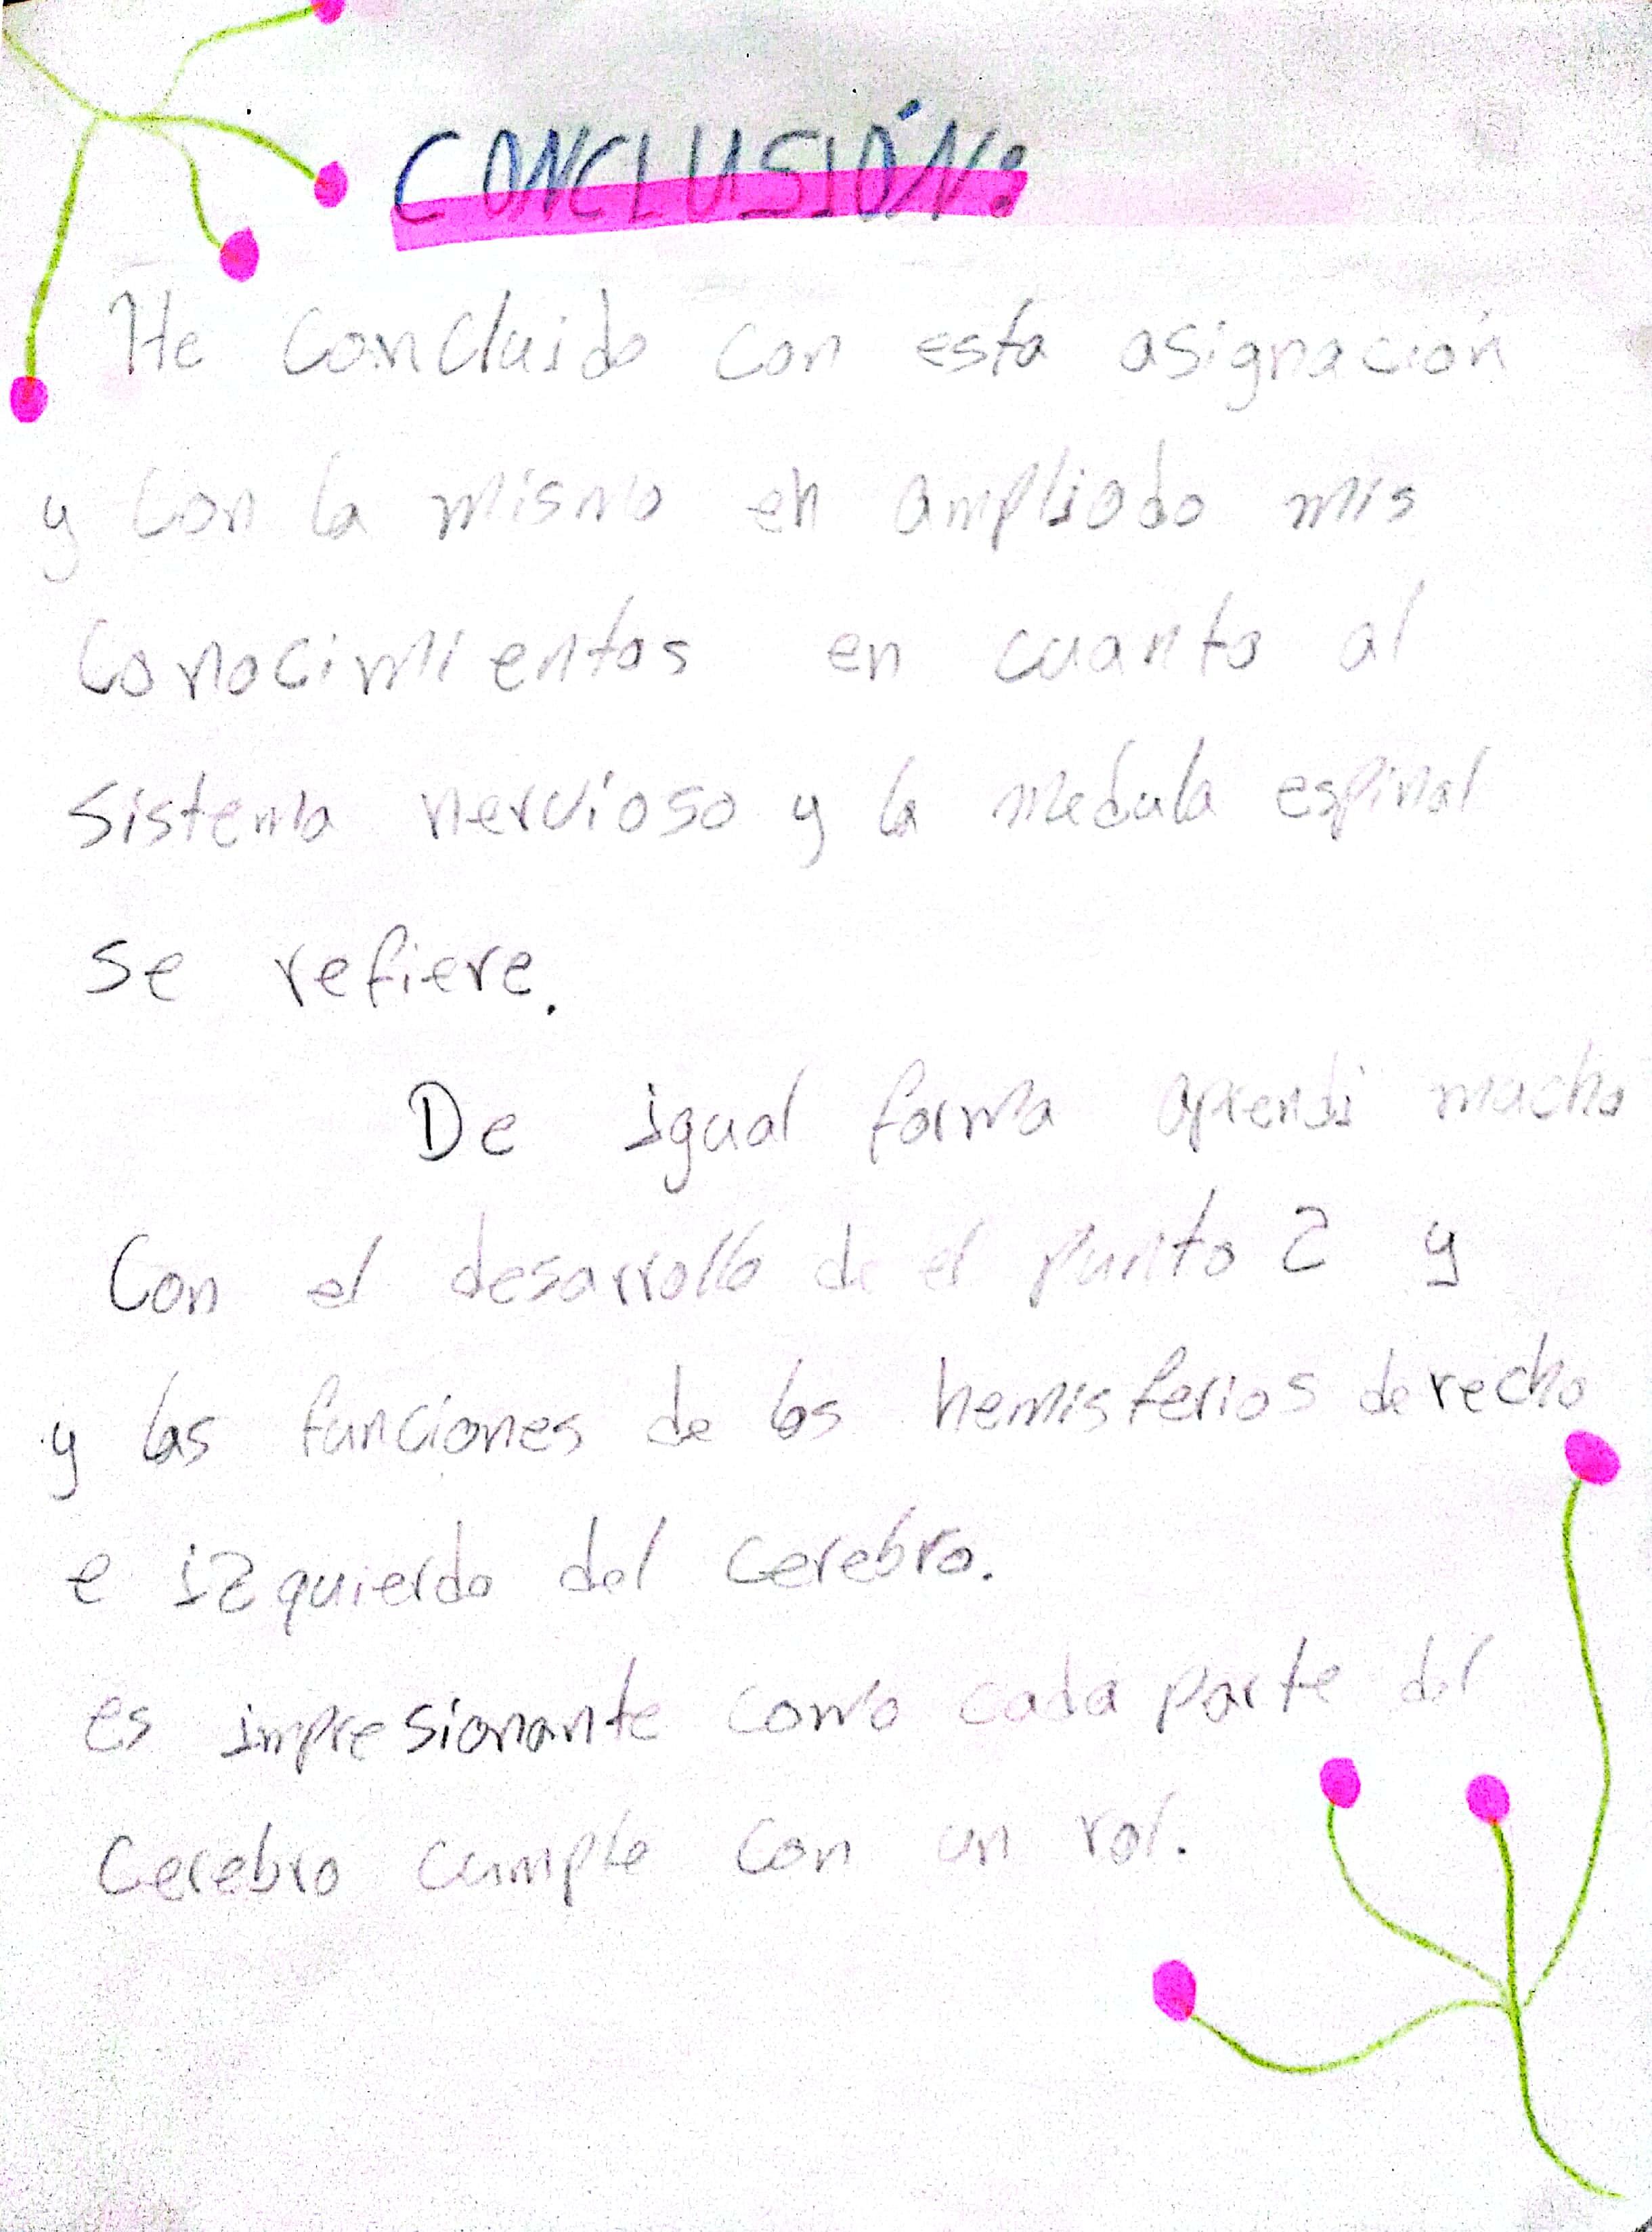 CONCLUSIÓN:
He Concluido con esta asignación
y con la misma eh ampliado mis
conocimientos en cuanto al
sistema nervioso y la medula espinal
se refiere.
De igual forma aprendi mucho
Con el desarrollo de el punto 2 y
y las funciones de los hemisferios derecho
e izquierdo del cerebro.
es impresionante como cada parte del
cerebro cumple con un rol.